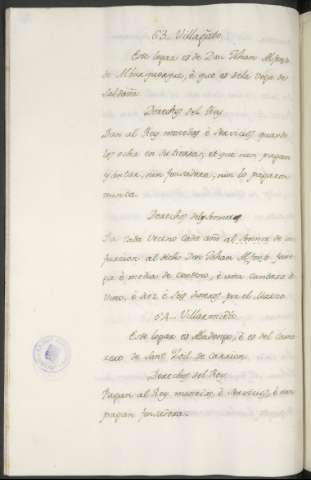 63. Villasirlo
Este logar es de Don Johan Alfonso
de Alburquerque, é que es dela Vejr de
Saldaña.
Derechos del Rey
Dan al Rey moneda é servicios quando
los echa en su tierra; et que non pagan
yantar, nin fonsadera, nin lo pagaron
nunca.
Derechos del Señor
Da cada vecino cada año al Señor de in-
furcion al dicho Don Johan Alfonso
é media de centeno, é una cantara de
vino, é dos dineros por el Marzo.
64. Villarmida
Este logar es Abadengo, é es del Camа-
rero de Sant Zoil de Carrion.
Derechos del Rey
Pagan al Rey moneda, é servicios, é non
pagan fonsadera.